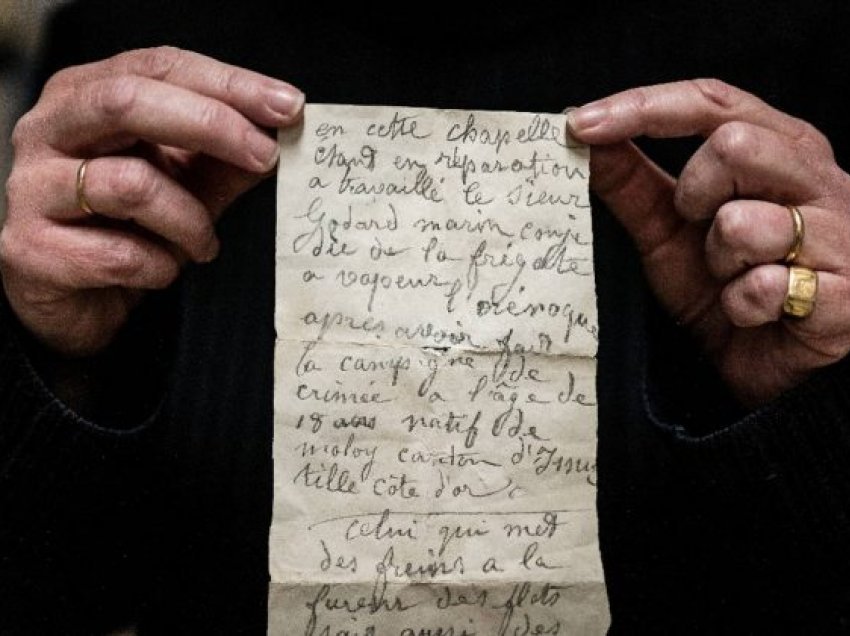 en cette chapelle
etant en réparation
a travaillé le sieur
Godard marin conje
die de la frégate
a vapeur l'orénoque
après avoir fait
la campagne de
crimée a l'âge de
18 ans natif de
moloy canton d'Issur
tille côte d'or
Celui qui met
des freins a la
fureur des flots
sait aussi des